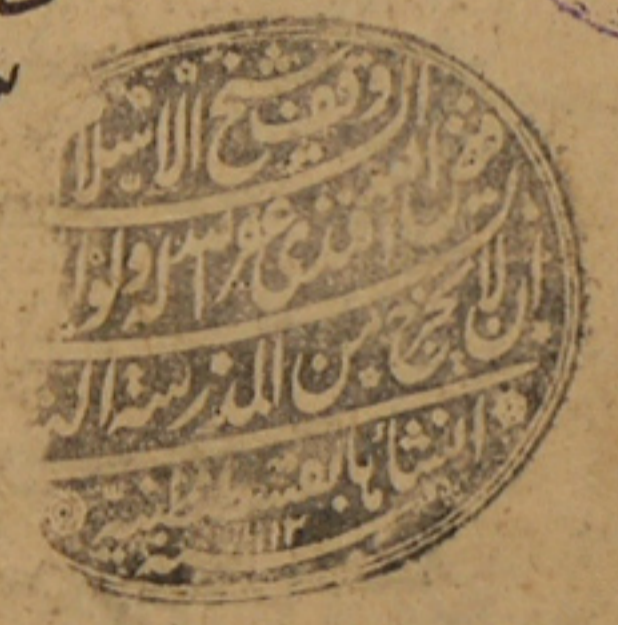 وقف شيخ الاسلا
فيض الله افندى غفر الله له ولوا
ان لا يخرج من المدرسة الت
انشأها بقسطنطينية
سنة ١١١٢